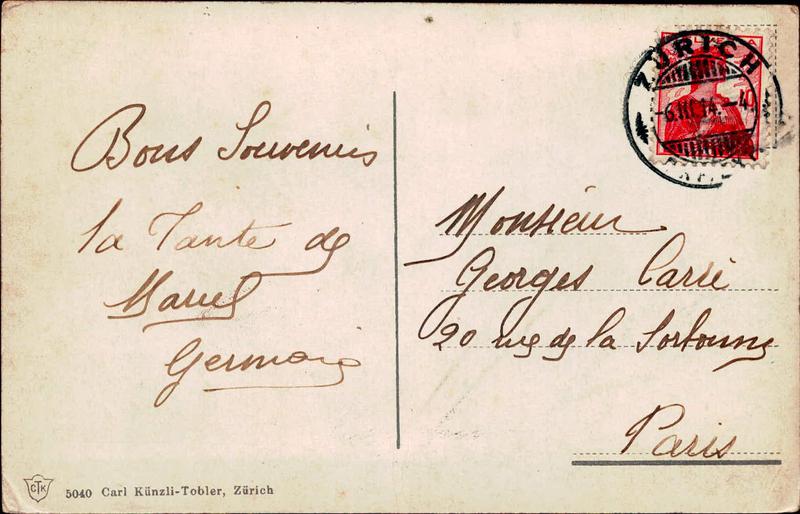 Bons Souvenirs
la Tante de
Marcel
Germain
Monsieur
Georges Carré
20 rue de la Sorbonne
Paris
HELVETIA
10
ZÜRICH
-6.III.14.-4
CTK
5040 Carl Künzli-Tobler, Zürich